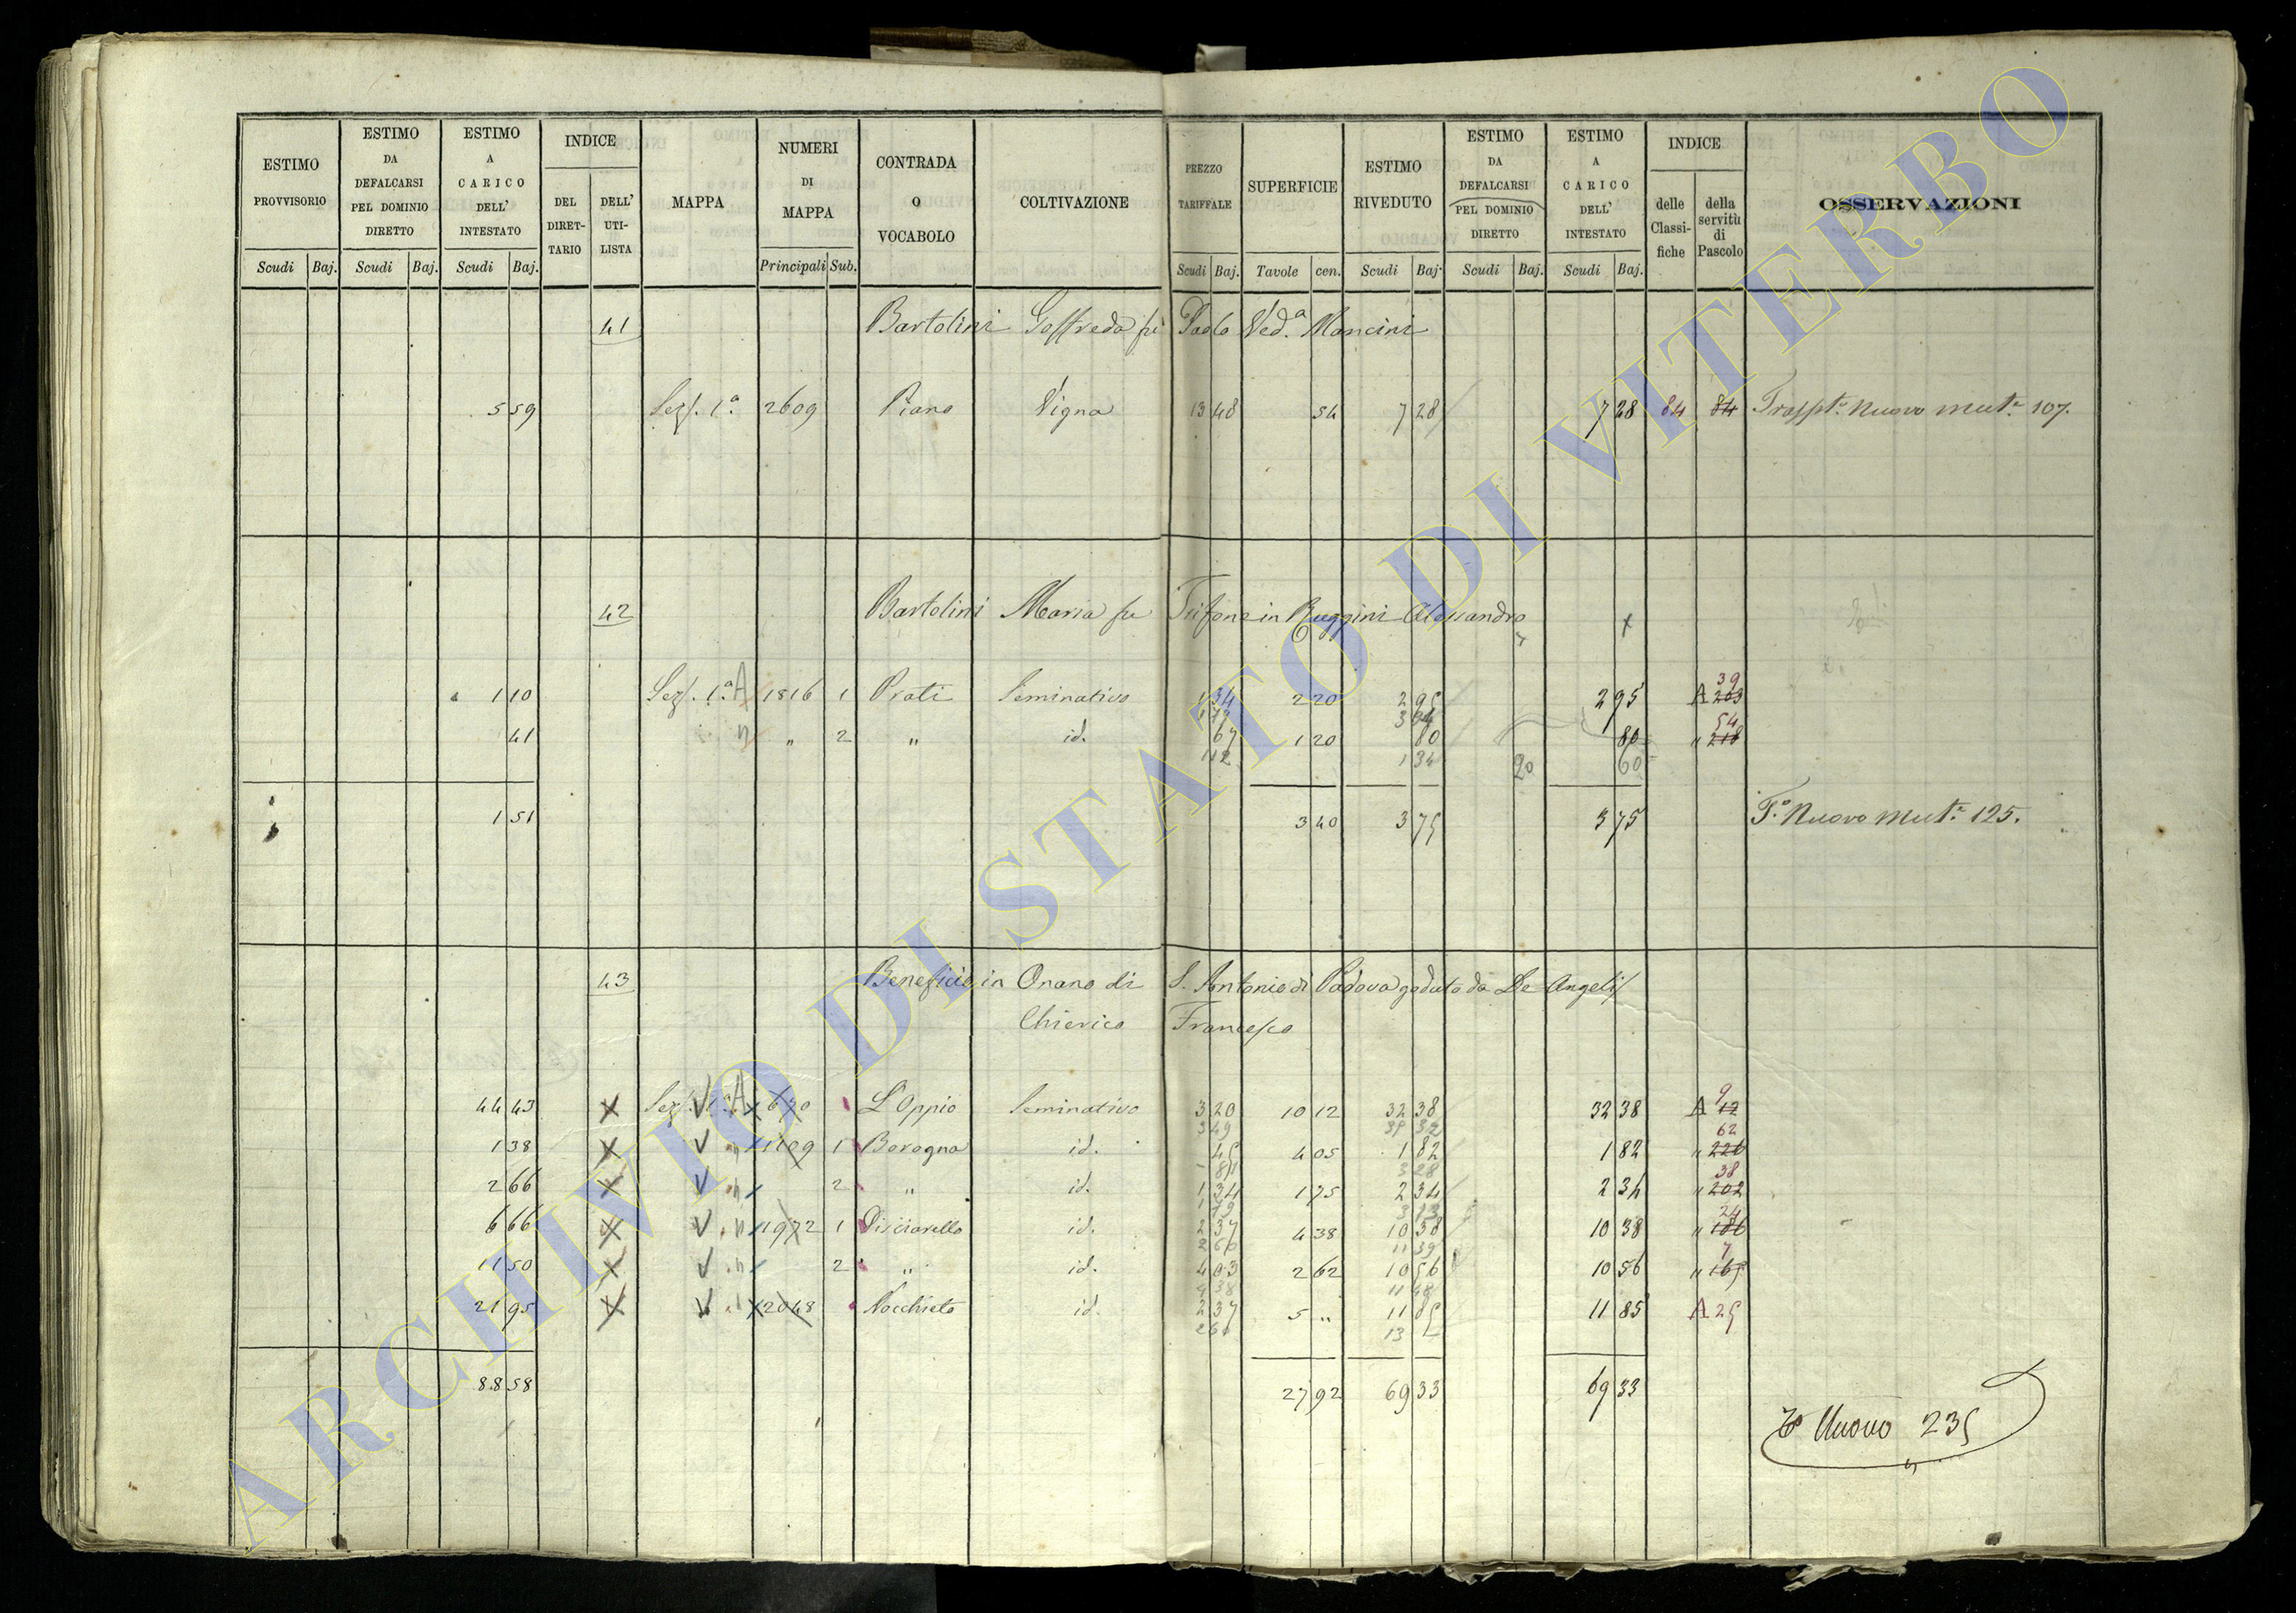 ESTIMO PROVVISORIO | ESTIMO DA DEFALCARSI PEL DOMINIO DIRETTO | ESTIMO A CARICO DELL' INTESTATO | INDICE | MAPPA | NUMERI DI MAPPA | CONTRADA O VOCABOLO | COLTIVAZIONE | PREZZO TARIFFALE | SUPERFICIE | ESTIMO RIVEDUTO | ESTIMO DA DEFALCARSI PEL DOMINIO DIRETTO | ESTIMO A CARICO DELL' INTESTATO | INDICE | OSSERVAZIONI
DEL DIRET-TARIO | DELL' UTI-LISTA | delle Classi-fiche | della servitù di Pascolo
Scudi | Baj. | Scudi | Baj. | Scudi | Baj. | Principali | Sub. | Scudi | Baj. | Tavole | cen. | Scudi | Baj. | Scudi | Baj. | Scudi | Baj.
41 Bartolini Goffreda fu Paolo Ved.ª Mancini
5 59 | Sez. 1ª | 2609 | Piano | Vigna | 13 48 | 54 | 7 28 | 7 28 | 84 | 84 | Traspt.º Nuovo Mut.ª 107.
42 Bartolini Maria fu Trifone in Ruggini Alessandro
1 10 | Sez. 1ª A | 1816 | 1 | Prati | Seminativo | 1 34 | 2 20 | 2 95 | 2 95 | A 203 39
41 | " | 2 | " | id. | 67 | 1 20 | 80 | 80 | " 218 54
1 12 | 1 34 | 20 | 60
1 51 | 3 40 | 3 75 | 3 75 | T.º Nuovo Mut.ª 125.
43 Beneficio in Onano di S. Antonio di Padova goduto da De Angelis
Chierico Francesco
44 43 | Sez. 1ª A | 630 | L'Oppio | Seminativo | 3 20 | 10 12 | 32 38 | 32 38 | A 12 9
3 49
1 38 | 1109 | 1 | Borogna | id. | 45 | 4 05 | 1 82 | 1 82 | " 226 62
2 66 | 2 | " | id. | 1 34 | 1 75 | 2 34 | 2 34 | " 202 38
6 66 | 1972 | 1 | Pisciarello | id. | 2 37 | 4 38 | 10 38 | 10 38 | " 186 24
11 39
11 50 | 2 | " | id. | 4 03 | 2 62 | 10 56 | 10 56 | " 165 7
21 95 | 2048 | Nocchieto | id. | 2 37 | 5 " | 11 85 | 11 85 | A 25
88 58 | 27 92 | 69 33 | 69 33
Tº Nuovo 235
ARCHIVIO DI STATO DI VITERBO